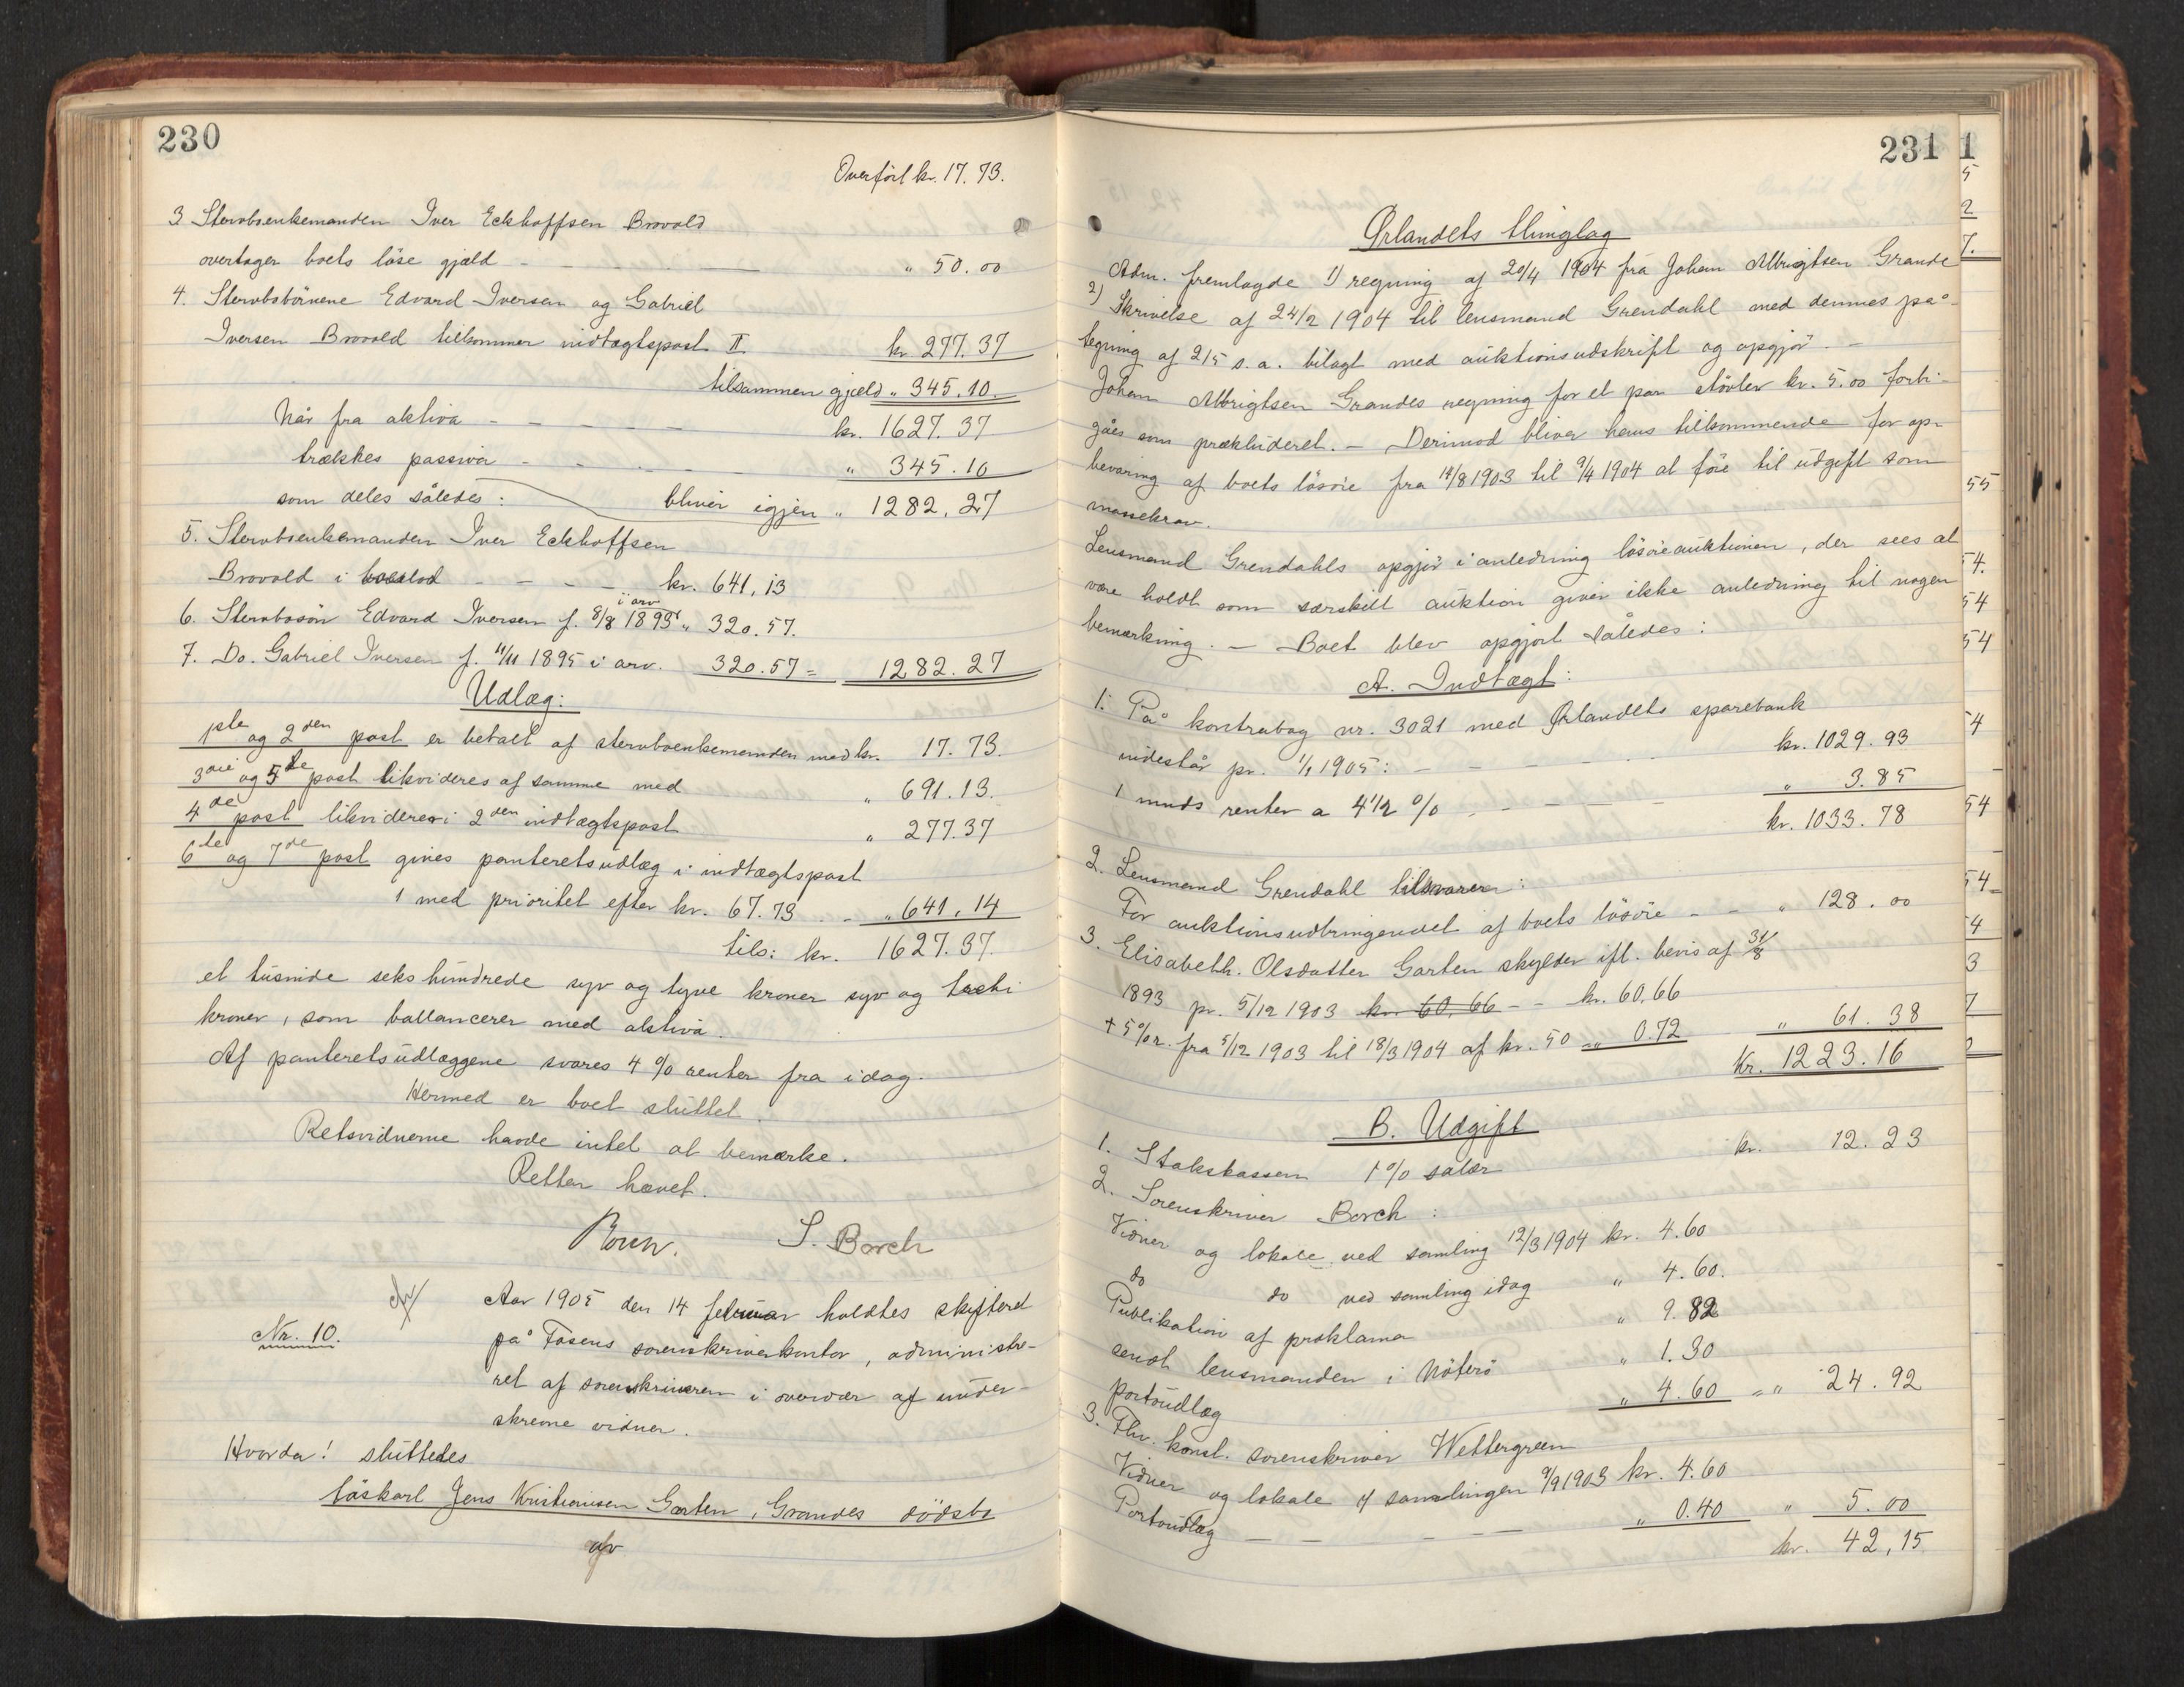 230
Overført kr. 17.73.
3 Stervboenkemanden Iver Eckhoffsen Brovold
overtager boets löse gjæld - " 50.00
4. Stervbobörnene Edvard Iversen og Gabriel
Iversen Brovold tilkommer indtægtspost II kr. 277.37
tilsammen gjæld " 345.10.
Når fra aktiva - - - - - kr. 1627.37
trækkes passiva - - - - " 345.10
som deles således: bliver igjen " 1282.27
5. Stervboenkemanden Iver Eckhoffsen
Brovold i boeslod - - - - kr. 641.13
i arv
6. Stervbosön Edvard Iversen f. 8/8 1893 " 320.57.
7. Do. Gabriel Iversen f. 11/11 1895 i arv. 320.57 = 1282.27
Udlæg:
1ste og 2den post er betalt af stervboenkemanden med kr. 17.73.
3die og 5te post likvideres af samme med " 691.13.
4de post likvideres i 2den indtægtspost " 277.37
6te og 7de post gives panteretsudlæg i indtægtspost
1 med prioritet efter kr. 67.73 - - " 641.14
tils: kr. 1627.37.
et tusinde seks hundrede syv og tyve kroner syv og treti
kroner, som ballancerer med aktiva.
Af panteretsudlæggene svares 4 % renter fra idag.
Hermed er boet sluttet.
Retsvidnerne havde intet at bemærke.
Retten hævet.
S. Borch
Nr. 10.
Aar 1905 den 14 februar holdtes skifteret
på Fosens sorenskriverkontor, administre-
ret af sorenskriveren i overvær af under-
skrevne vidner.
Hvorda! sluttedes
löskarl Jens Kristiansen Garten, Grandes dödsbo
af
231
Ørlandets thinglag
Adm. fremlagde 1) regning af 20/4 1904 fra Johan Albrigtsen Grande
2) Skrivelse af 24/2 1904 til lensmand Grendahl med dennes på-
tegning af 2/5 s.a. bilagt med auktionsudskrift og opgjör. -
Johan Albrigtsen Grandes regning for et par stövler kr. 5.00 forbi-
gåes som prækluderet. - Derimod bliver hans tilkommende for op-
bevaring af boets lösöre fra 14/8 1903 til 9/4 1904 at före til udgift som
massekrav.
Lensmand Grendahls opgjör i anledning lösöreauktionen, der sees at
være holdt som særskilt auktion giver ikke anledning til nogen
bemærkning. - Boet blev opgjort således:
A. Indtægt:
1. På kontrabog nr. 3021 med Ørlandets sparebank
indestår pr. 1/1 1905: - - - - kr. 1029.93
1 mnds renter a 4 1/2 % - - - - " 3.85
kr. 1033.78
2. Lensmand Grendahl tilsvarer:
For auktionsudbringendet af boets lösöre - - " 128.00
3. Elisabeth Olsdatter Garten skylder ifl. bevis af 31/8
1893 pr. 5/12 1903 kr 60.66 - - kr. 60.66
+ 5 % r. fra 5/12 1903 til 18/3 1904 af kr. 50 - " 0.72 " 61.38
Kr. 1223.16
B. Udgift
1. Statskassen 1 % salær kr. 12.23
2. Sorenskriver Borch:
Vidner og lokale ved samling 12/3 1904 kr. 4.60
do do ved samling idag " 4.60.
Publikation af proklama " 9.82
sendt lensmanden i Nöterö " 1.30
portoudlæg " 4.60 = " 24.92
3. Fhv. konst. sorenskriver Wettergreen
Vidner og lokale v/ samlingen 9/9 1903 kr. 4.60
Portoudlæg - - - - " 0.40 " 5.00
kr. 42.15